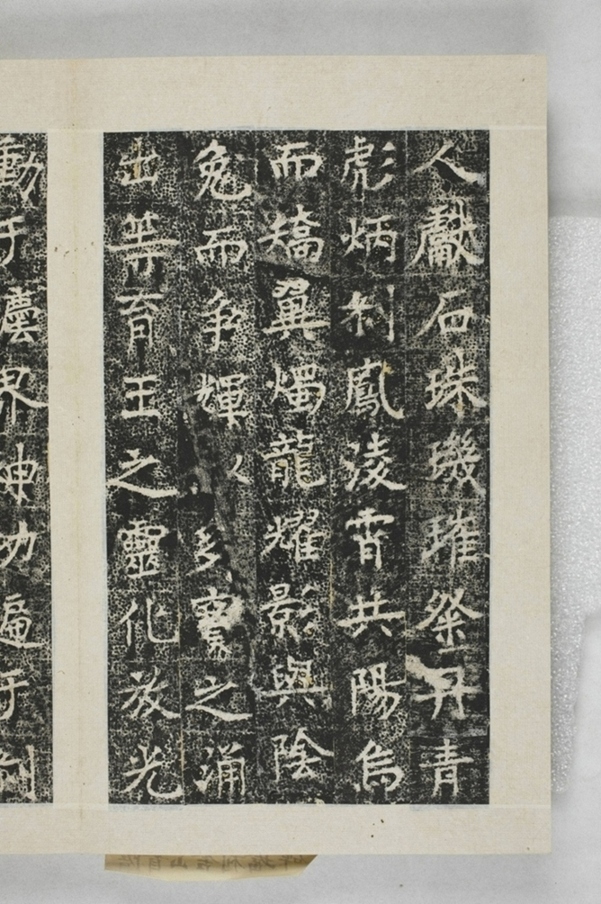 人獻石珠璣璀粲丹青
彪炳刹鳳凌霄共陽烏
而矯翼燭龍耀影與陰
兔而爭輝多寶之涌
出等育王之靈化放光
動于塵界神功遍于刹